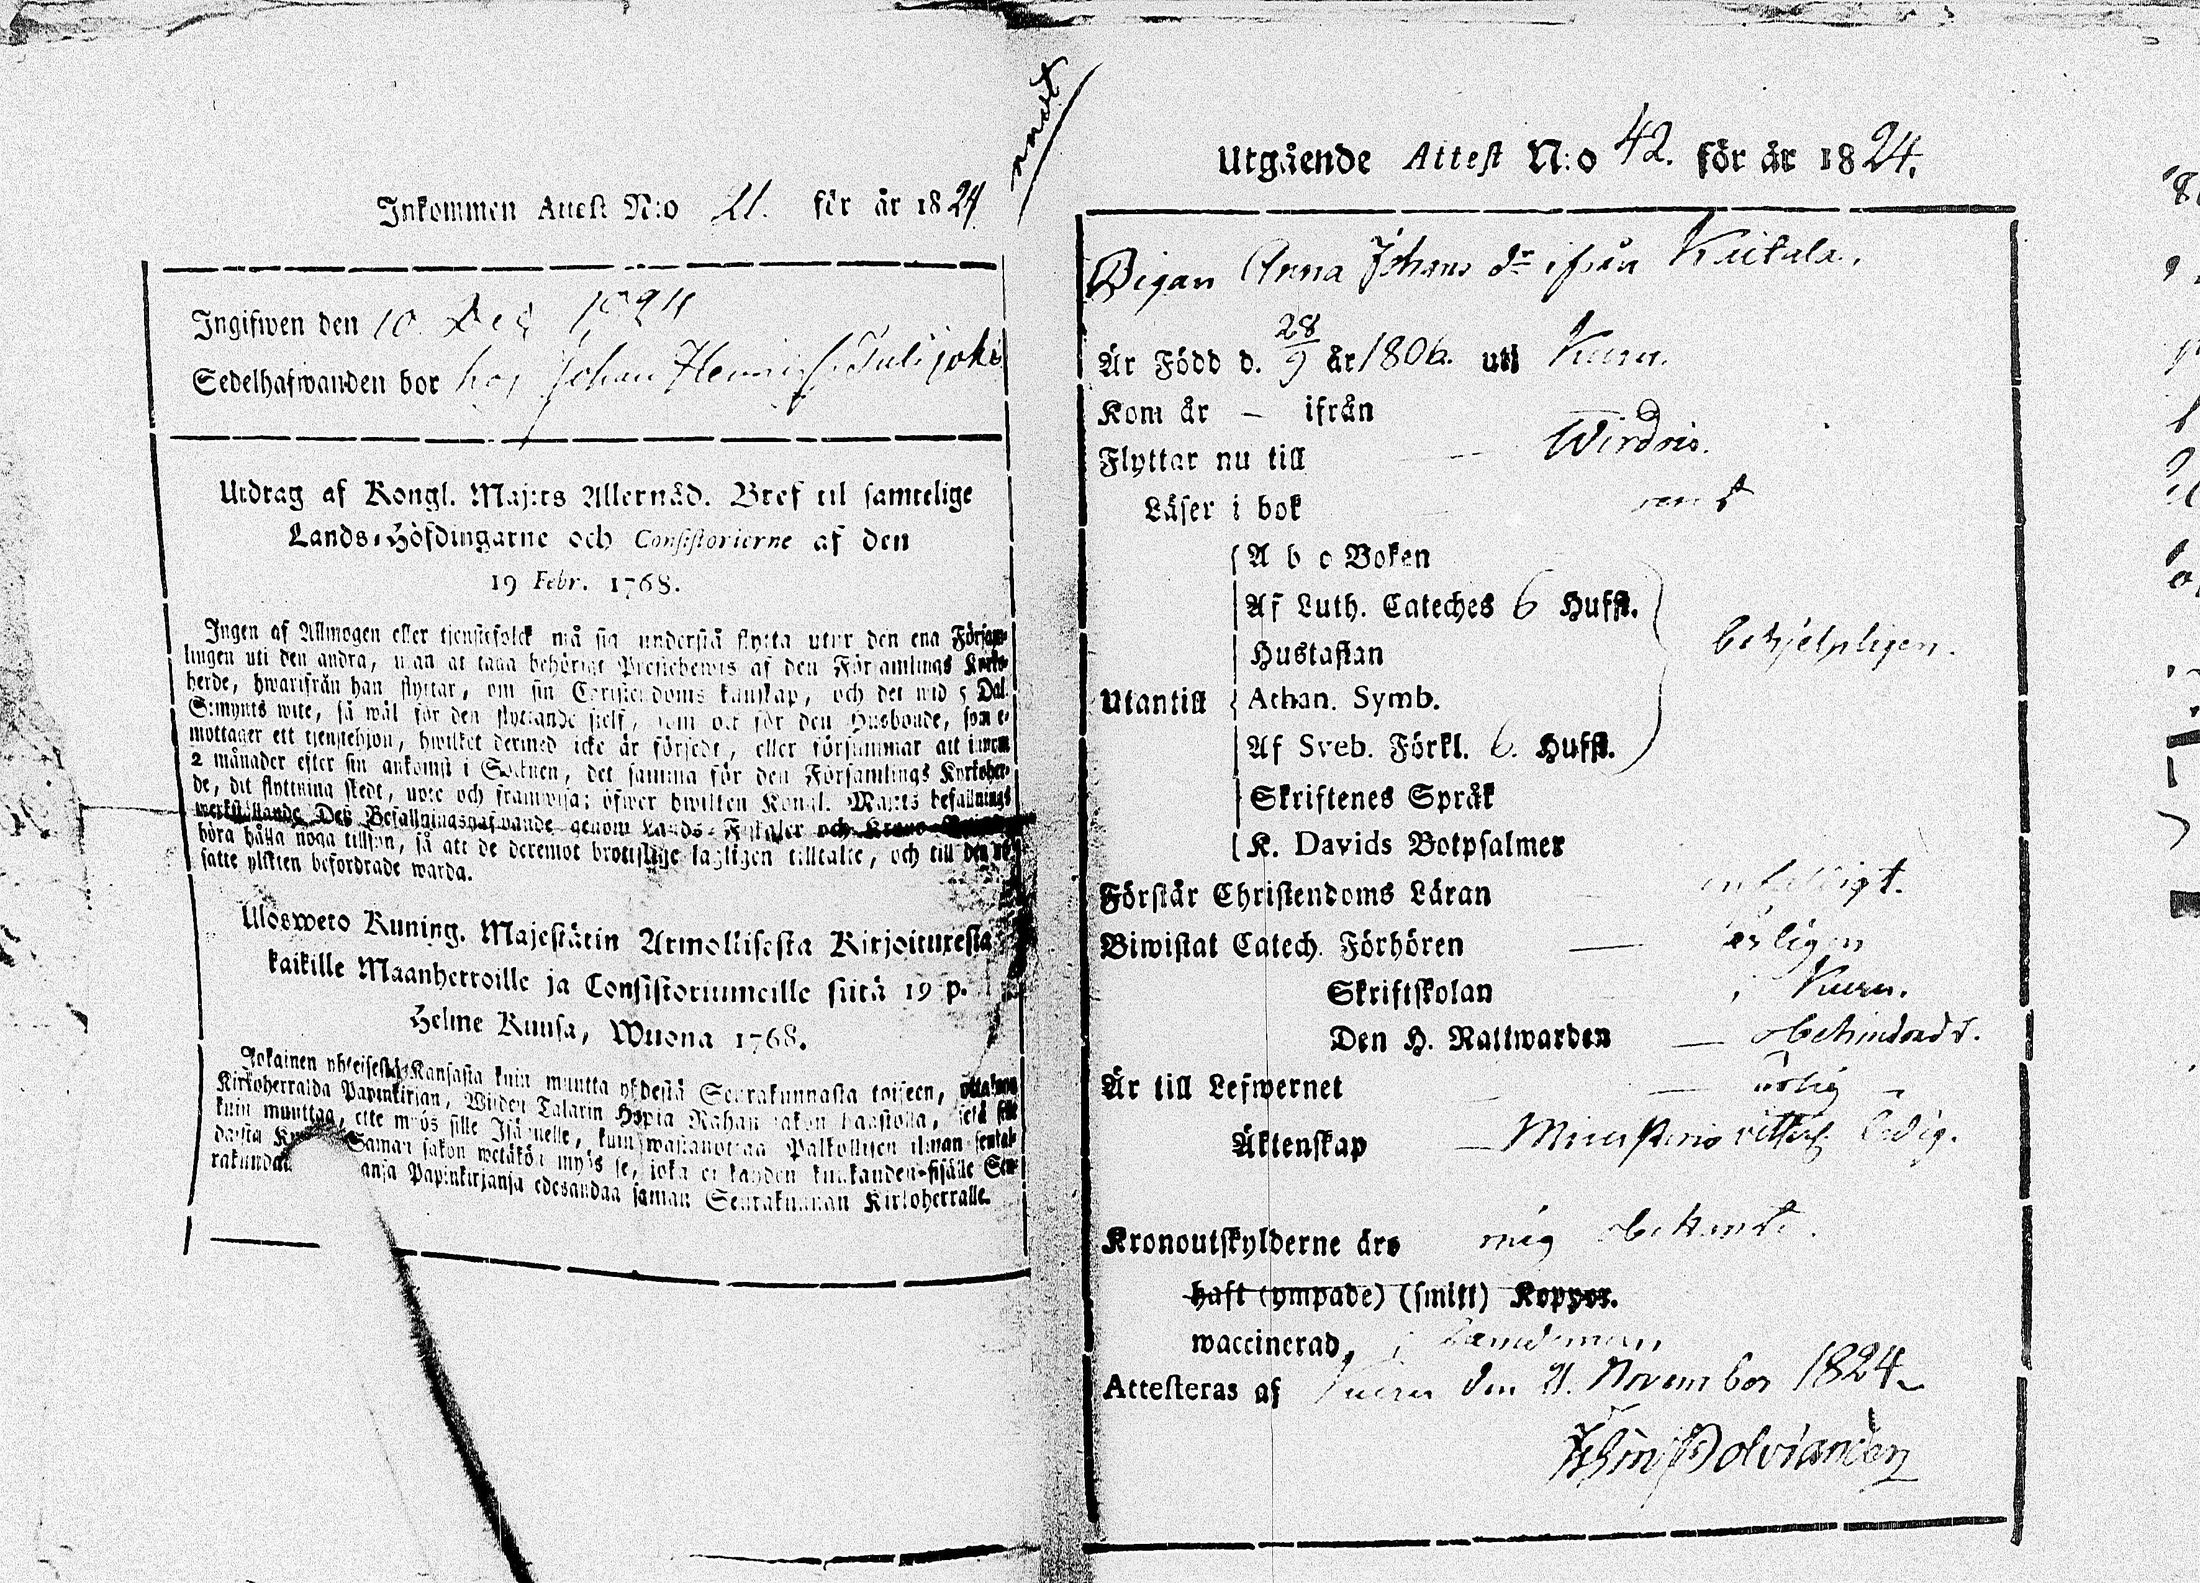 Inkommen Attest N:o 21. för år 1824
Ingifwen den 10 Dec 1824
Sedelhafwanden bor hos Johan Henrich Tulijoki
Utdrag af Kongl. Maj:ts Allernåd. Bref til samtelige
Lands-Höfdingarne och Consistorierne af den
19 Febr. 1768.
Ingen af Allmogen eller tjenstefolck må sig understå flytta utur den ena Försam-
lingen uti den andra, utan at taga behörigt Prestebewis af den Församlings Kyrko-
herde, hwarifrån han flyttar, om sin Christendoms kunskap, och det wid 5 Dal.
S:mynts wite, så wäl för den flyttande sjelf, som ock för den Husbonde, som e-
mottager ett tjenstehjon, hwilket dermed icke är försedt, eller försummar att innom
2 månader efter sin ankomst i Socknen, det samma för den Församlings Kyrkoher-
de, dit flyttning skedt, upte och framwisa; öfwer hwilken Kongl. Maj:ts befallnings
werkställande Deß Befallningshafwande genom Lands-Fiskaler och Krono
höra hålla noga tillsyn, så att de deremot brottslige lagligen tilltalte, och till den
satte plikten befordrade warda.
Ulosweto Kuning. Majestätin Armollisesta Kirjoituxesta
kaikille Maanherroille ja Consistoriumeille siitä 19 p.
Helme Kuusa, Wuona 1768.
Jokainen yhteisestä Kansasta kuin muutta yhdestä Seurakunnasta toiseen, ottakoon
Kirkoherralda Papinkirjan, Wijden Talarin Hopia Rahan sakon haastolla, sekä sille
kuin muuttaa, ette myös sille Isännelle, kuin wastanottaa Palkollisen ilman senkal-
daista Saman sakon wetäkön myös se, joka ei kahden kuukauden sisälle Seu-
rakundaan Papinkirjansa edesandaa saman Seurakunnan Kirkoherralle.
Utgående Attest N:o 42. för år 1824.
Pigan Anna Johans dr ifrån Keitula.
Är Född d. 28/9 år 1806. uti Kuru.
Kom år – ifrån
Flyttar nu till — Wirdois.
Läser i bok rent
A b c Boken
Af Luth. Cateches 6 Hufst.
Hustaflan
Utantill Athan. Symb.
behjelpligen.
Af Sveb. Förkl. 6. Hufst.
Skriftenes Språk
K. Davids Botpsalmer
Förstår Christendoms Läran enfaldigt.
Biwistat Catech. Förhören — årligen
Skriftskolan i Kuru.
Den H. Nattwarden — obehindradt.
Är till Lefwernet — ärlig –
Äktenskap — ledig.
Kronoutskylderne äro mig obekant.
haft (ympade) (smitt) Koppor.
waccinerad,
Attesteras af Kuru den 21. November 1824.